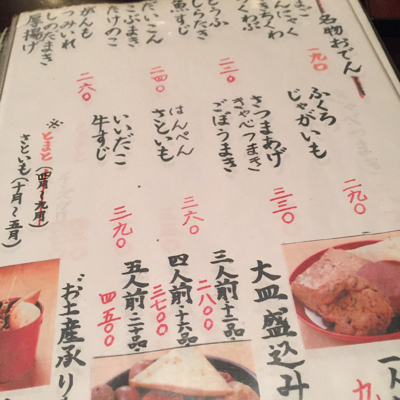 名物おでん
こんにゃく
ちくわ
ちくわぶ
一九〇
とうふ
しらたき
魚すじ
二四〇
だいこん
こぶまき
たけのこ
がんも
つみいれ
しのだまき
厚揚げ
二六〇
ふくろ
じゃがいも
二九〇
さつまあげ
きゃべつまき
ごぼうまき
三三〇
はんぺん
さといも
三六〇
いいだこ
牛すじ
三九〇
※
とまと(四月〜九月)
さといも(十月〜五月)
大皿盛込み
三人前・十二品
二八〇〇
四人前・十六品
三七〇〇
五人前・二十品
四五〇〇
お土産承り
一人
九